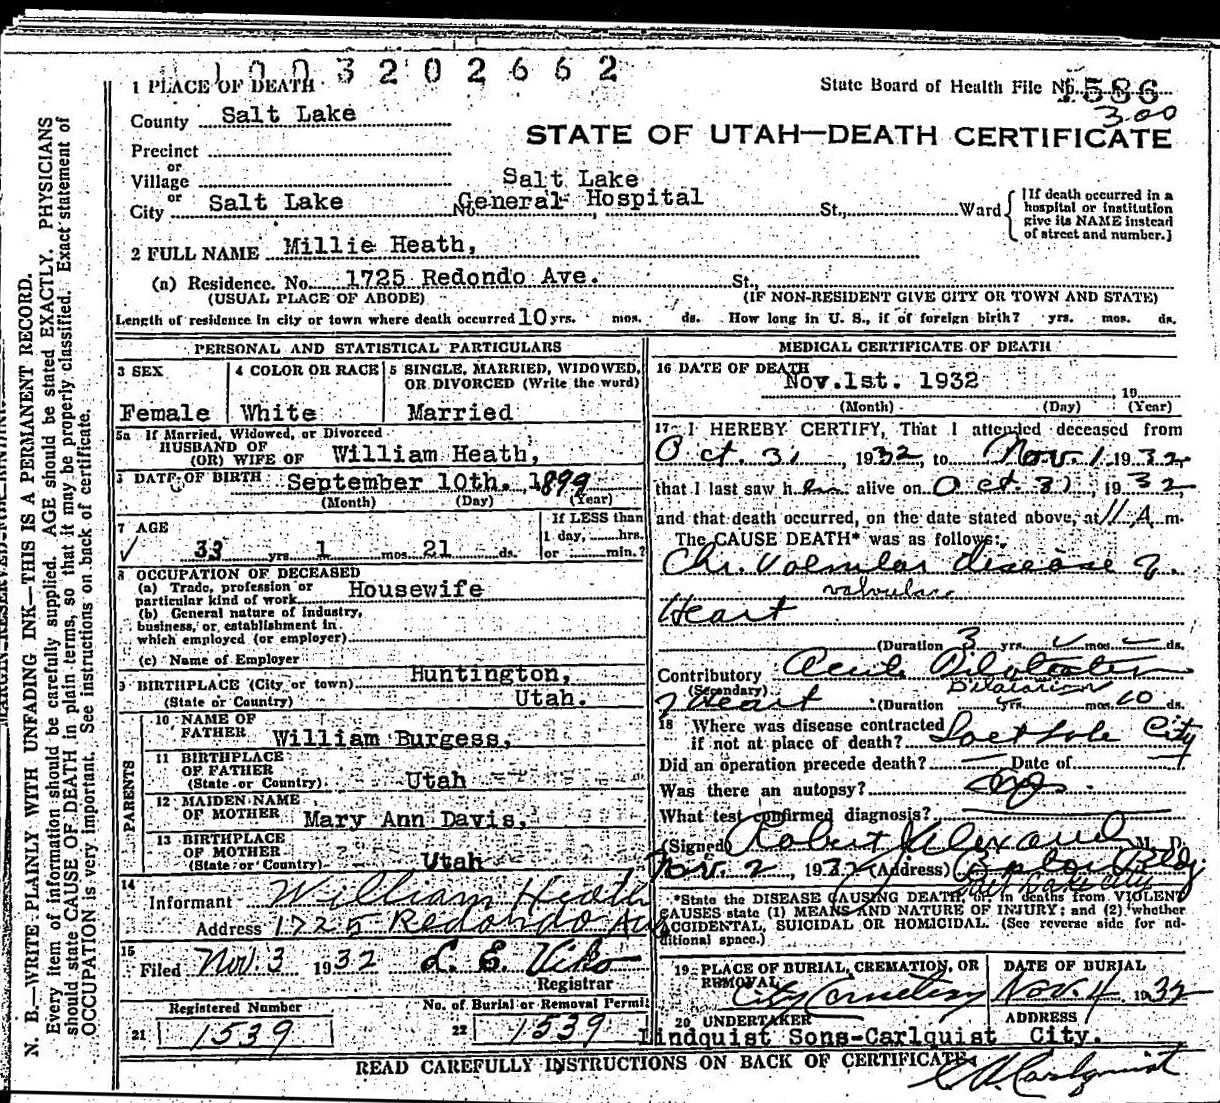 1003202662
1 PLACE OF DEATH
State Board of Health File No. 1586
300
County Salt Lake
STATE OF UTAH—DEATH CERTIFICATE
Precinct
or
Village
Salt Lake
or
City Salt Lake No. General Hospital St., Ward
[If death occurred in a hospital or institution give its NAME instead of street and number.]
2 FULL NAME Millie Heath,
(a) Residence. No. 1725 Redondo Ave. St.,
(USUAL PLACE OF ABODE) (IF NON-RESIDENT GIVE CITY OR TOWN AND STATE)
Length of residence in city or town where death occurred 10 yrs. mos. ds. How long in U. S., if of foreign birth? yrs. mos. ds.
PERSONAL AND STATISTICAL PARTICULARS
3 SEX
Female
4 COLOR OR RACE
White
5 SINGLE, MARRIED, WIDOWED, OR DIVORCED (Write the word)
Married
5a If Married, Widowed, or Divorced
HUSBAND OF
(OR) WIFE OF William Heath,
DATE OF BIRTH September 10th. 1899
(Month) (Day) (Year)
7 AGE
33 yrs. 1 mos. 21 ds.
If LESS than
1 day, hrs.
or min.?
8 OCCUPATION OF DECEASED
(a) Trade, profession or
particular kind of work Housewife
(b) General nature of industry,
business, or establishment in
which employed (or employer)
(c) Name of Employer
9 BIRTHPLACE (City or town) Huntington,
(State or Country) Utah.
PARENTS
10 NAME OF
FATHER William Burgess,
11 BIRTHPLACE
OF FATHER
(State or Country) Utah
12 MAIDEN NAME
OF MOTHER Mary Ann Davis,
13 BIRTHPLACE
OF MOTHER
(State or Country) Utah
14
Informant William Heath
Address 1725 Redondo Av
15
Filed Nov. 3 1932 L. E. Viko
Registrar
Registered Number
21 1539
No. of Burial or Removal Permit
22 1539
MEDICAL CERTIFICATE OF DEATH
16 DATE OF DEATH
Nov. 1st. 1932 19
(Month) (Day) (Year)
17 I HEREBY CERTIFY, That I attended deceased from
Oct. 31, 1932, to Nov. 1 1932,
that I last saw h alive on Oct. 31, 1932,
and that death occurred, on the date stated above, at 11 A m.
The CAUSE DEATH* was as follows:
Chr. Valvular disease of
valvular
Heart
(Duration 3 yrs. mos. ds.
Contributory Acute Dilatation
(Secondary) Dilatation
of Heart (Duration yrs. mos. 10 ds.
18 Where was disease contracted
if not at place of death? Salt Lake City
Did an operation precede death? Date of
Was there an autopsy?
What test confirmed diagnosis?
(Signed) Robert Alexander M. D.
Nov. 2, 1932 (Address) Bldg.
Salt Lake City
*State the DISEASE CAUSING DEATH, or in deaths from VIOLENT
CAUSES state (1) MEANS AND NATURE OF INJURY; and (2) whether
ACCIDENTAL, SUICIDAL OR HOMICIDAL. (See reverse side for ad-
ditional space.)
19 PLACE OF BURIAL, CREMATION, OR
REMOVAL
City Cemetery
DATE OF BURIAL
Nov. 4 1932
20 UNDERTAKER
Lindquist Sons-Carlquist
ADDRESS
City.
READ CAREFULLY INSTRUCTIONS ON BACK OF CERTIFICATE.
Carlquist
MARGIN RESERVED FOR BINDING
N. B.—WRITE PLAINLY WITH UNFADING INK—THIS IS A PERMANENT RECORD.
Every item of information should be carefully supplied. AGE should be stated EXACTLY. PHYSICIANS
should state CAUSE OF DEATH in plain terms, so that it may be properly classified. Exact statement of
OCCUPATION is very important. See instructions on back of certificate.